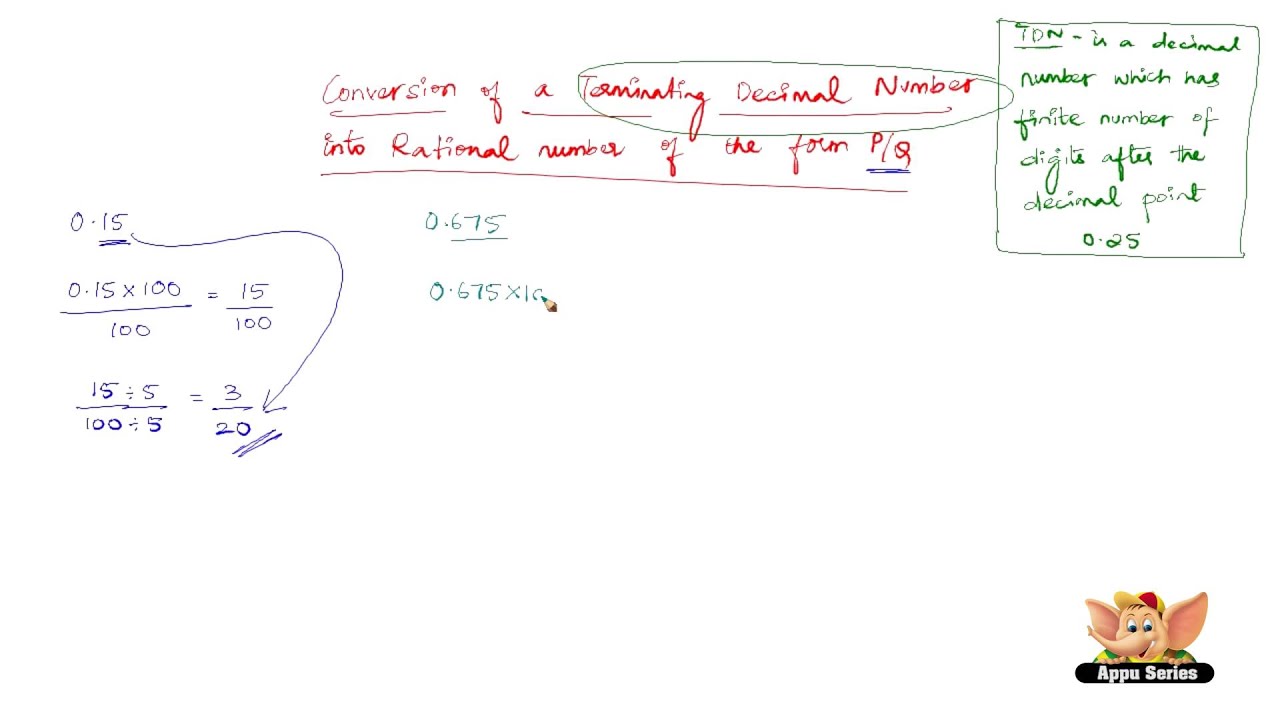 Conversion of a Terminating Decimal Number
into Rational number of the form P/Q
TDN - is a decimal
number which has
finite number of
digits after the
decimal point
0.25
0.15
0.15 × 100
100
= 15
100
15 ÷ 5
100 ÷ 5
= 3
20
0.675
0.675 × 10
Appu Series